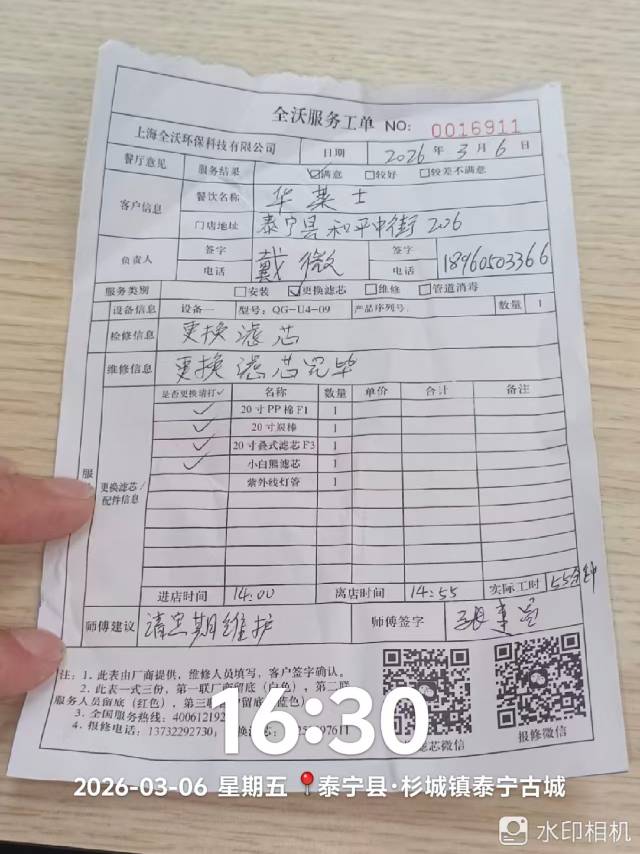 全沃服务工单 NO: 0016911
上海全沃环保科技有限公司 日期 2026 年 3 月 6 日
餐厅意见 服务结果 ☑满意 □较好 □较差不满意
客户信息 餐饮名称 华莱士
门店地址 泰宁县和平中街206
负责人 签字 戴微 签字
电话 电话 18960503366
服务类别 □安装 ☑更换滤芯 □维修 □管道消毒
设备信息 设备一 型号: QG-U4-09 产品序列号: 数量 1
检修信息 更换滤芯
维修信息 更换滤芯完毕
是否更换请打✓ 名称 数量 单价 合计 备注
✓ 20寸PP棉F1 1
✓ 20寸炭棒 1
✓ 20寸叠式滤芯F3 1
✓ 小白熊滤芯 1
紫外线灯管 1
服
更换滤芯/
配件信息
进店时间 14:00 离店时间 14:55 实际工时 55分钟
师傅建议 请定期维护 师傅签字
注: 1、此表由厂商提供，维修人员填写，客户签字确认。
2、此表一式三份，第一联厂商留底（白色），第二联
服务人员留底（红色），第三联 留底（蓝色）
3、全国服务热线: 40061219
4、报修电话: 13732292730 97611
滤芯微信 报修微信
16:30
2026-03-06 星期五 泰宁县·杉城镇泰宁古城
水印相机